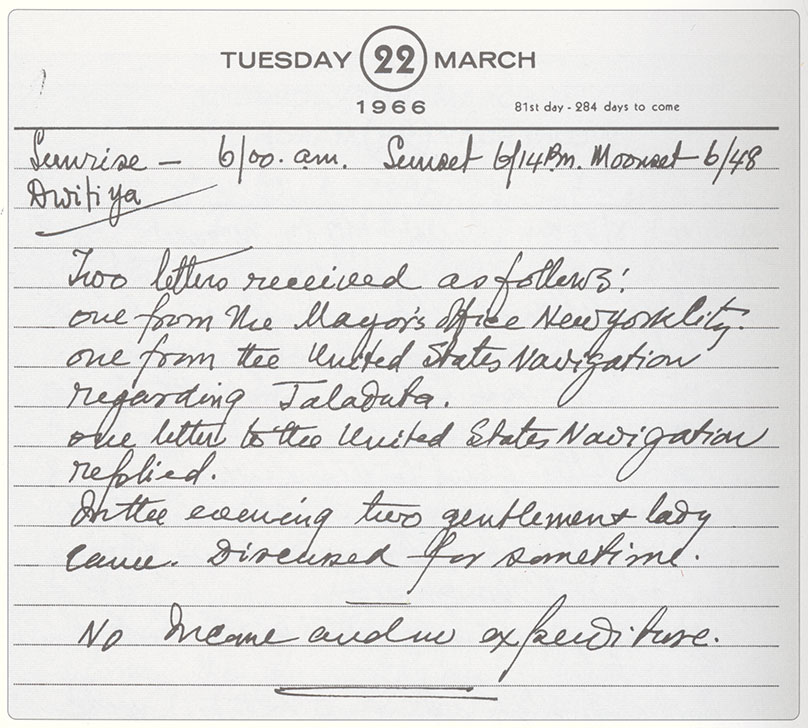 TUESDAY 22 MARCH
1966 81st day - 284 days to come
Sunrise – 6/00. a.m. Sunset 6/14 P.m. Moonset 6/48
Dwitiya
Two letters received as follows:
one from the Mayor's office New york City.
one from the United States Navigation
regarding Jaladuta.
one letter to the United States Navigation
replied.
In the evening two gentlemen & lady
came. Discused for sometime.
No Income and no expenditure.